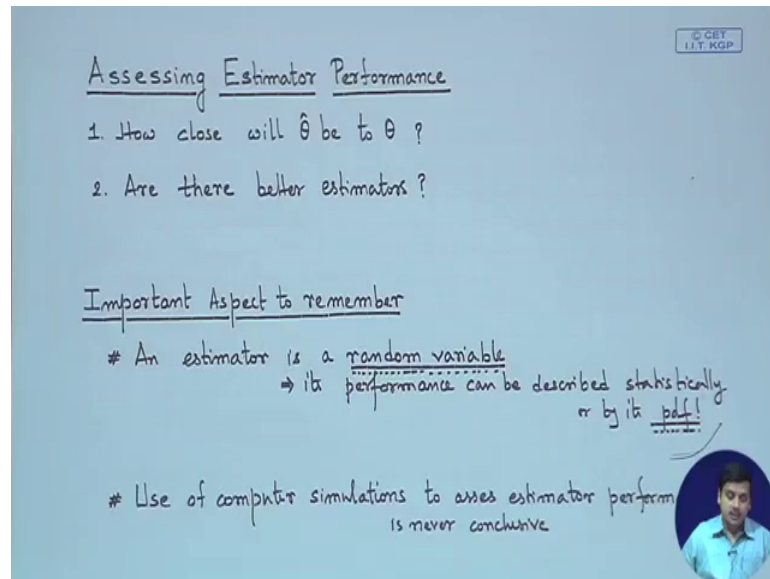 © CET
I.I.T. KGP
Assessing Estimator Performance
1. How close will θ̂ be to θ ?
2. Are there better estimators ?
Important Aspect to remember
* An estimator is a random variable
⇒ its performance can be described statistically
or by its pdf!
* Use of computer simulations to asses estimator perform
is never conclusive